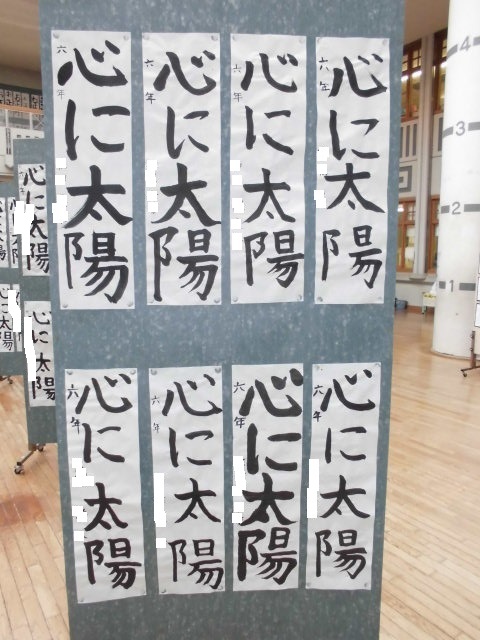 心に太陽
六年
心に太陽
六年
心に太陽
六年
心に太陽
六年
心に太陽
六年
心に太陽
六年
心に太陽
六年
心に太陽
六年
心に太陽
心に太陽
4
3
2
1